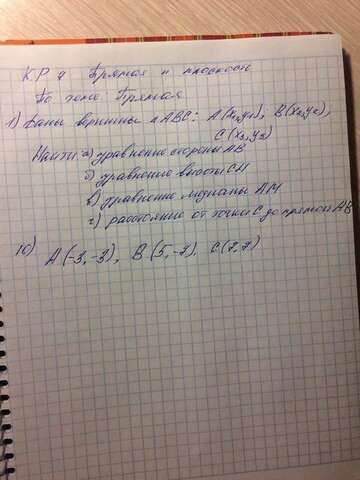 К.Р. я Прямая и плоскость
По теме: Прямая
1) Даны вершины ΔABC: A(x₁,y₁); B(x₂,y₂),
C(x₃,y₃)
Найти: а) уравнение стороны AB
б) уравнение высоты CH
в) уравнение медианы AM
г) расстояние от точки C до прямой AB
10) A(-3,-3), B(5,-7), C(7,7)